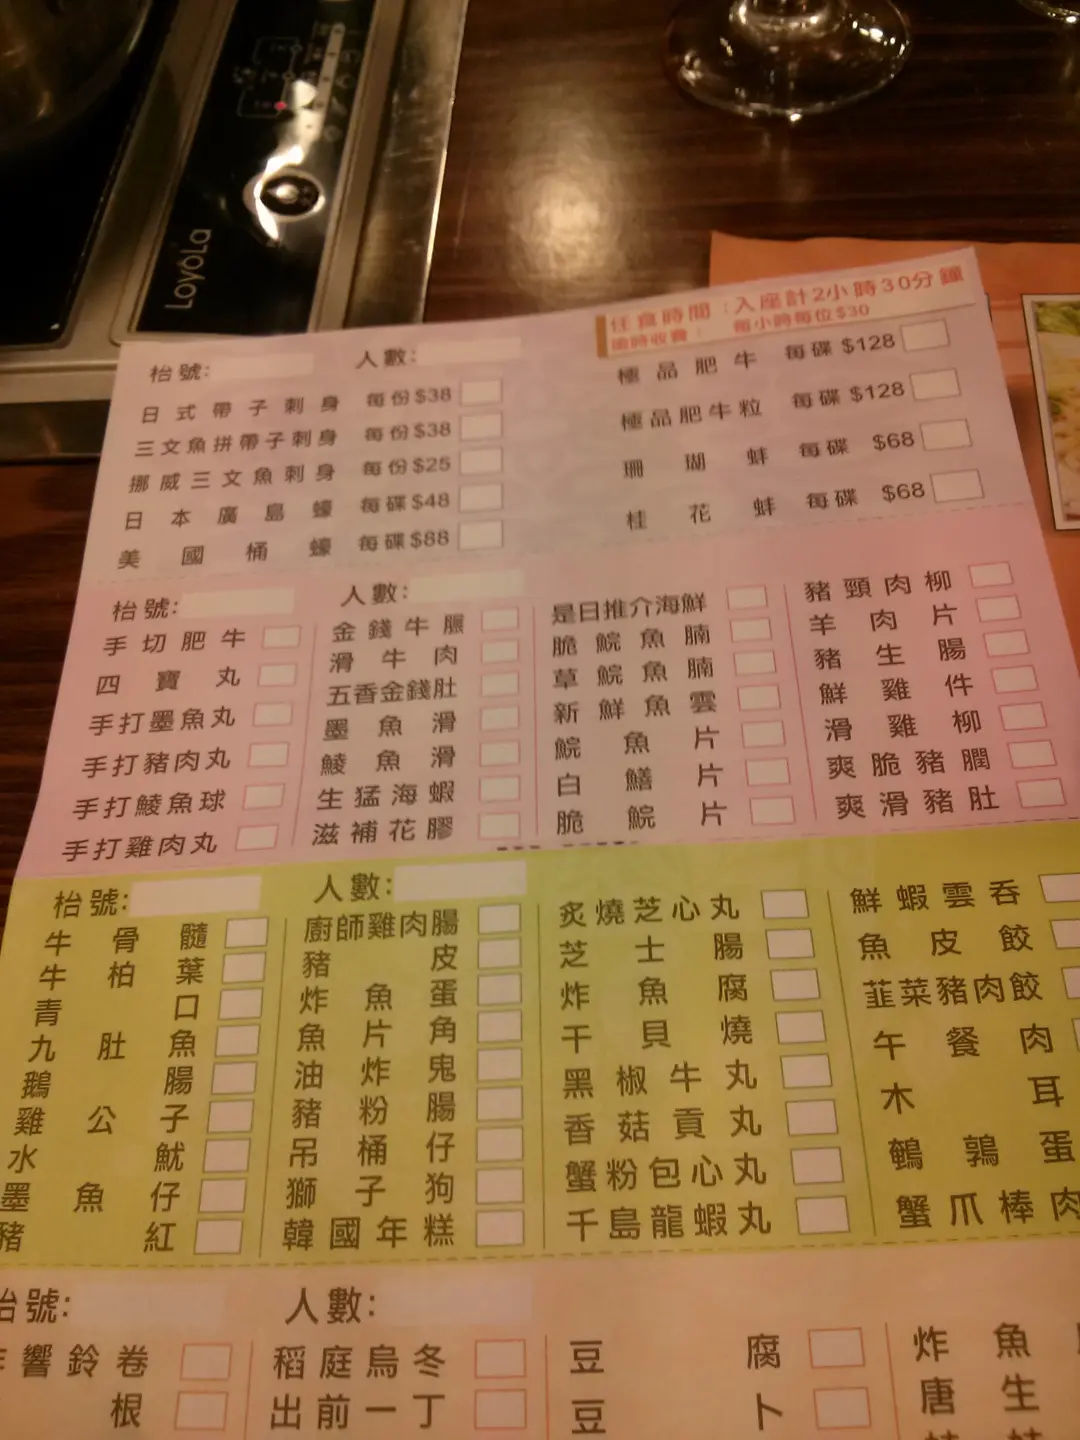 Loyola
任食時間：入座計2小時30分鐘
逾時收費： 每小時每位$30
枱號: 人數:
日式帶子刺身 每份$38
三文魚拼帶子刺身 每份$38
挪威三文魚刺身 每份$25
日本廣島蠔 每碟$48
美國桶蠔 每碟$88
極品肥牛 每碟 $128
極品肥牛粒 每碟 $128
珊瑚蚌 每碟 $68
桂花蚌 每碟 $68
枱號: 人數:
手切肥牛
四寶丸
手打墨魚丸
手打豬肉丸
手打鯪魚球
手打雞肉丸
金錢牛𦟌
滑牛肉
五香金錢肚
墨魚滑
鯪魚滑
生猛海蝦
滋補花膠
是日推介海鮮
脆鯇魚腩
草鯇魚腩
新鮮魚雲
鯇魚片
白鱔片
脆鯇片
豬頸肉柳
羊肉片
豬生腸
鮮雞件
滑雞柳
爽脆豬膶
爽滑豬肚
枱號: 人數:
牛骨髓
牛柏葉
青口
九肚魚
鵝腸
雞公子
水魷
墨魚仔
豬紅
廚師雞肉腸
豬皮
炸魚蛋
魚片角
油炸鬼
豬粉腸
吊桶仔
獅子狗
韓國年糕
炙燒芝心丸
芝士腸
炸魚腐
干貝燒
黑椒牛丸
香菇貢丸
蟹粉包心丸
千島龍蝦丸
鮮蝦雲吞
魚皮餃
韮菜豬肉餃
午餐肉
木耳
鵪鶉蛋
蟹爪棒肉
枱號: 人數:
響鈴卷
根
稻庭烏冬
出前一丁
豆腐
豆卜
炸魚
唐生